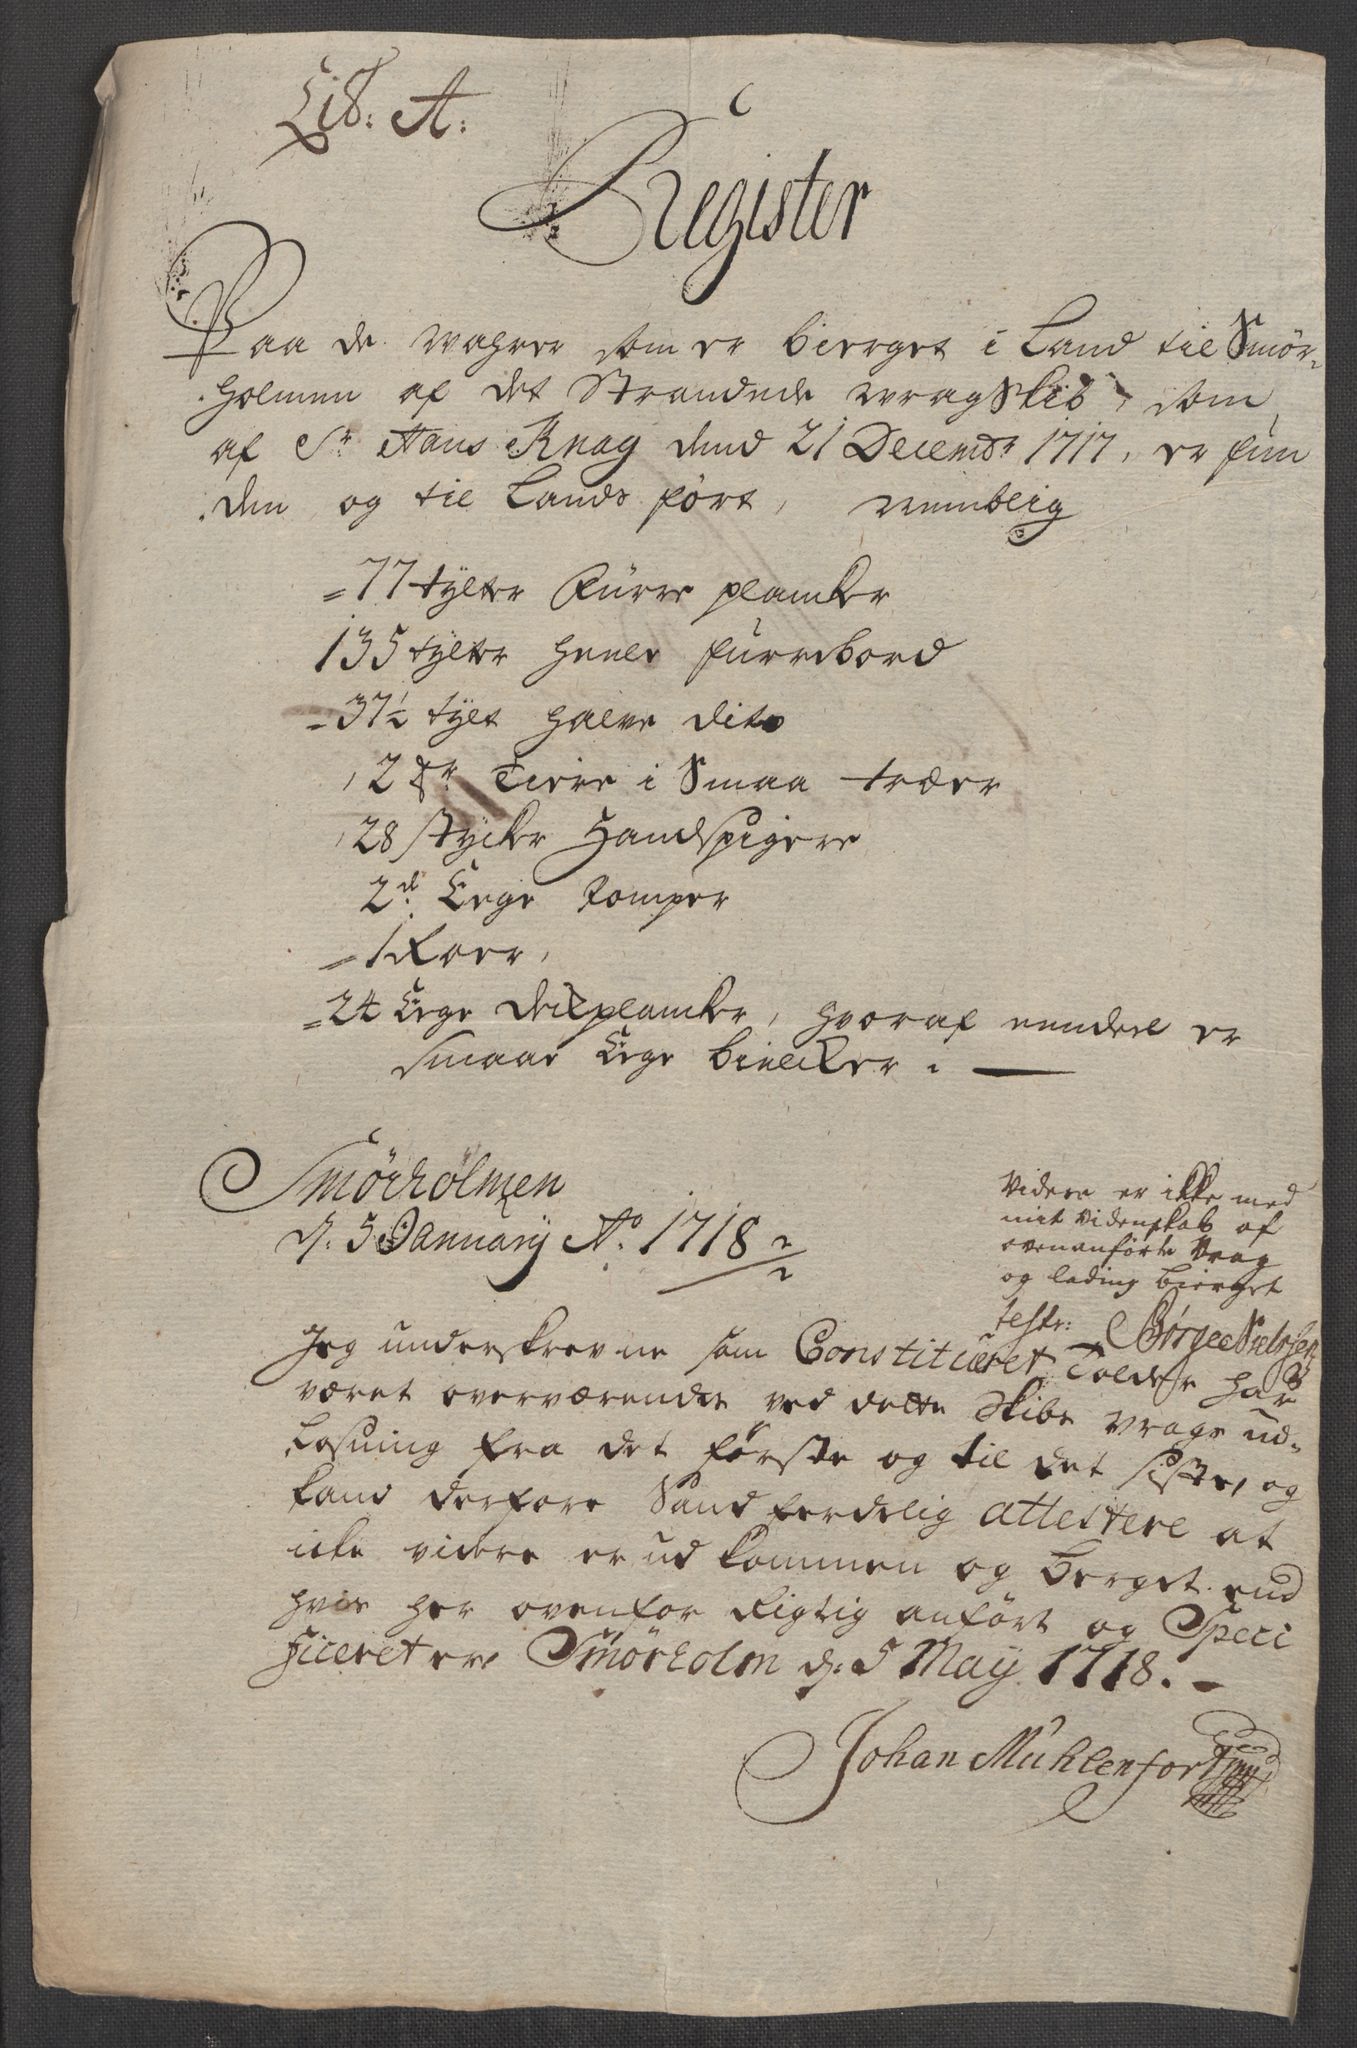 Lit: A:
Register
Paa de wahrer som er bierget i Land til Smör-
holmen af det Strandede wragSkib, som
af Sr Hans Knag dend 21 Decembr 1717, er fun
den og til Lands fört, nembligg
77 tylter Fürre plancker
135 tylter heele fürrebord
37½ tylt halve dito
2 tr Tiere i Smaa træer
28 stycker Handspigere
2 d. Eege Pomper
1 Roer,
24 Eege deckplancker, hvoraf eendeel er
smaae Eege bielcker.
Smörholmen
d. 5 January Ao. 1718
Videre er ikke med
mit Videnskab af
ovenanförte Vrag
og lading bierget
test: Børge Nielssen
Jeg underskrevne som Constitueret Tolder har
været overværende ved dette Skibs vrags ud-
Losning fra det förste og til det siste, og
kand derfore Sandferdelig attestere at
icke videre er ud kommen og berget end
hvis her ovenfor Rigtig anfört og Speci
ficeret er. Smörholm d: 5 May 1718.
Johan Mühlenfort